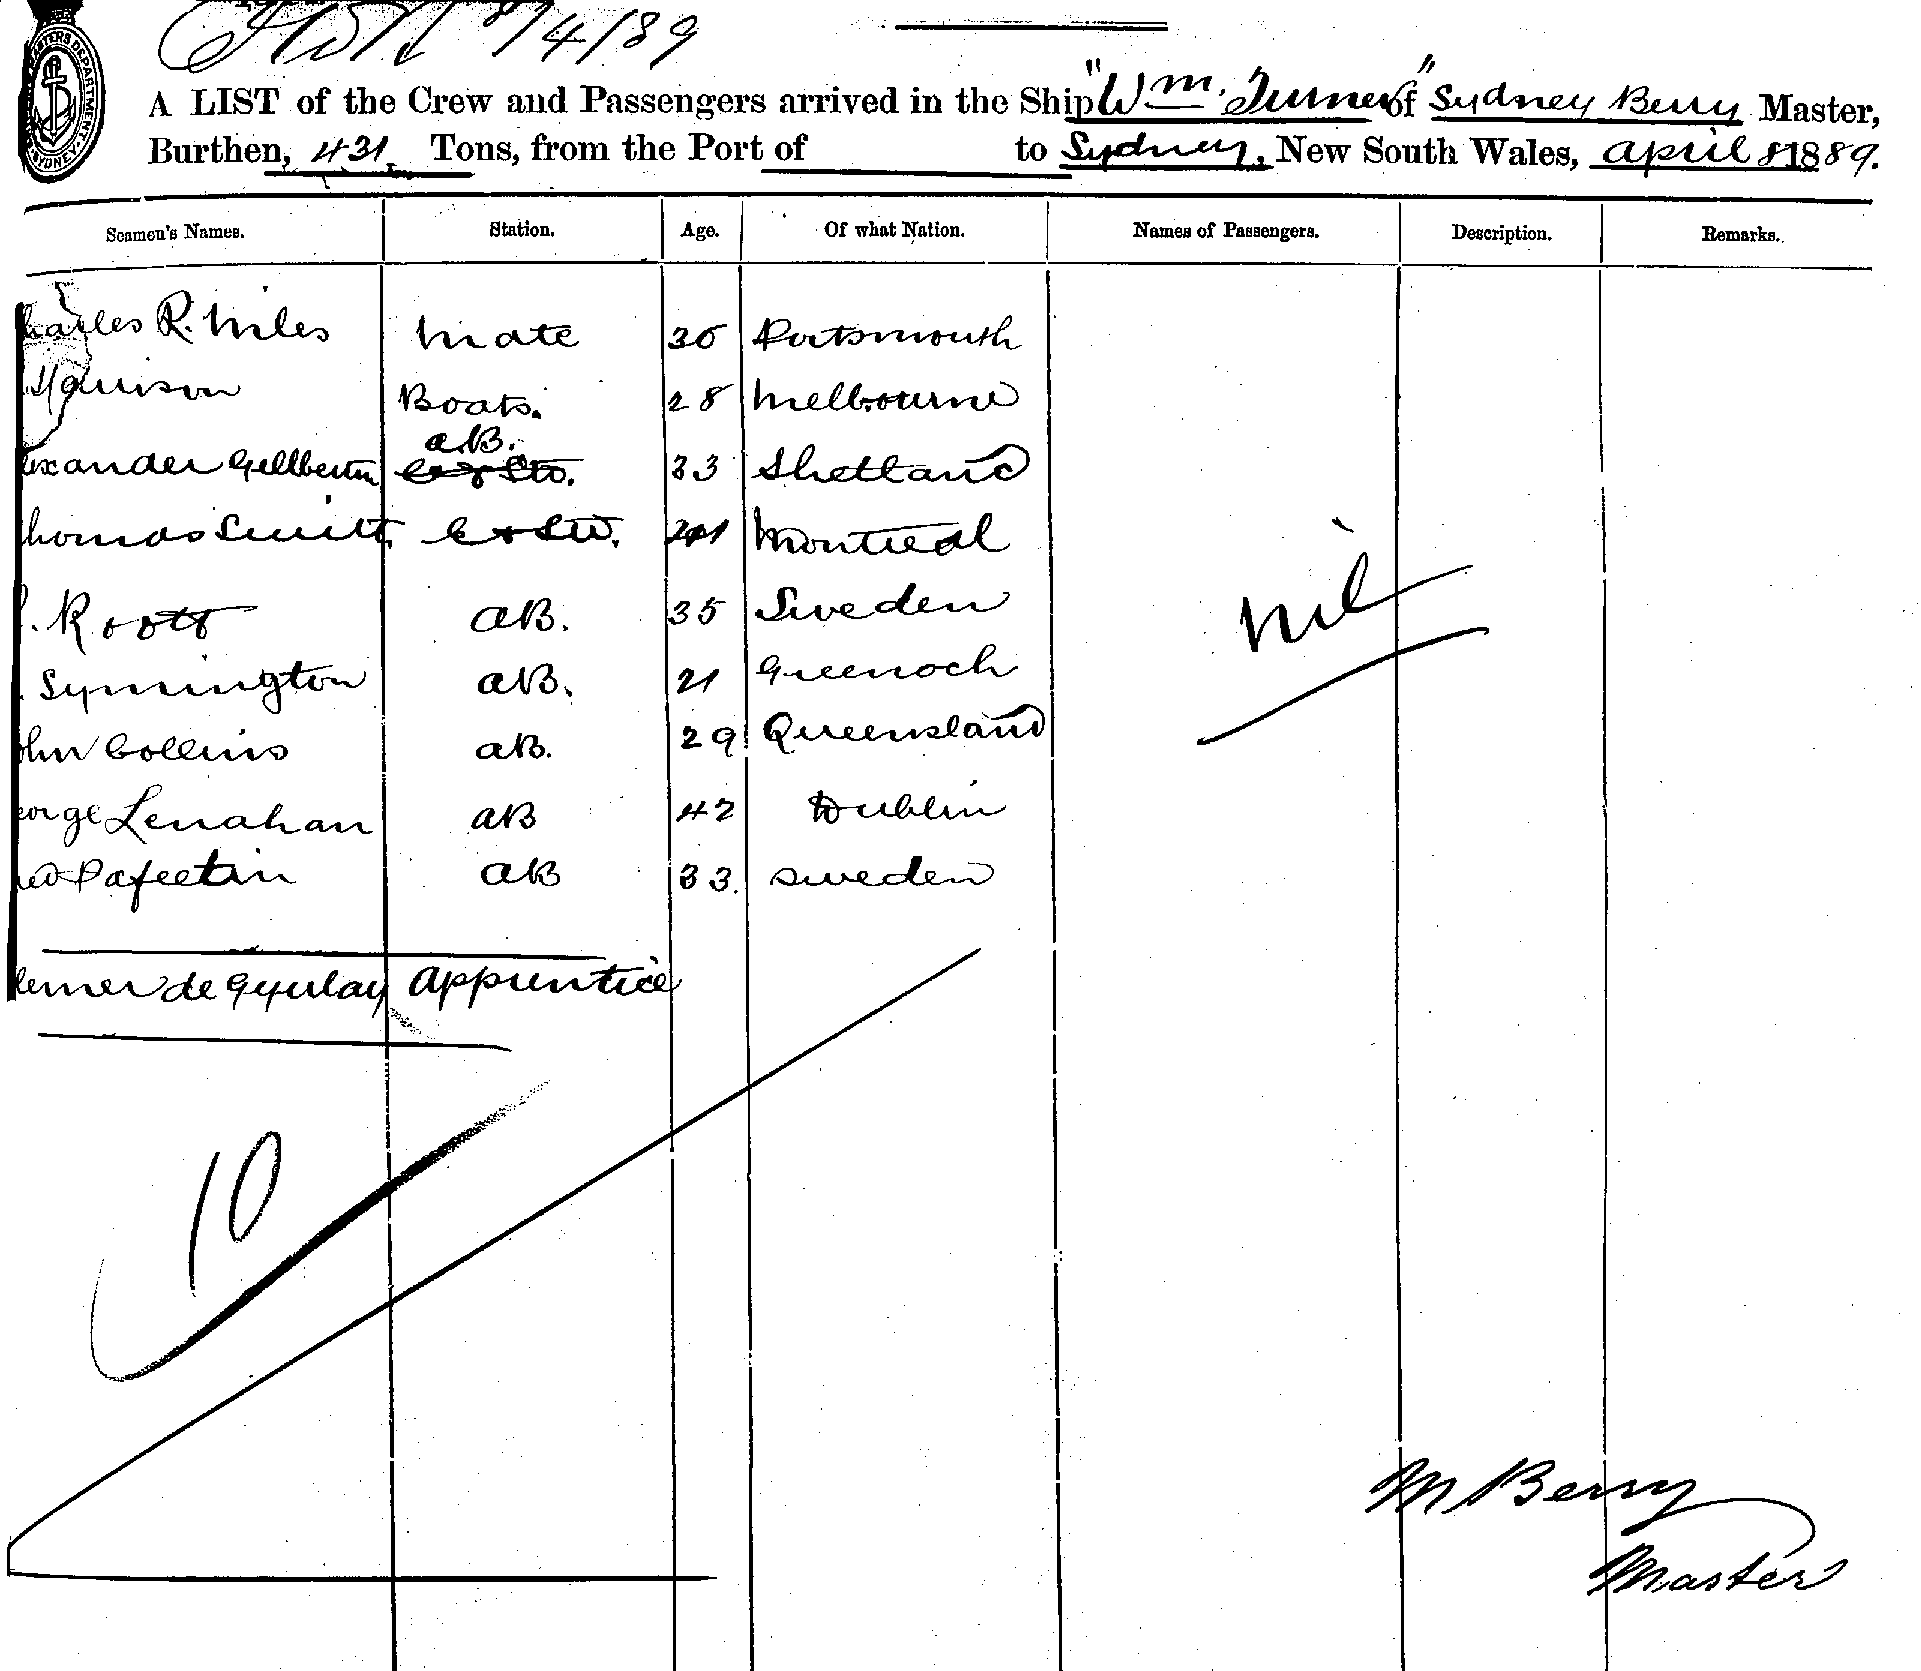 8/4/89
A LIST of the Crew and Passengers arrived in the Ship "Wm. Turner" of Sydney Berry Master,
Burthen, 431 Tons, from the Port of to Sydney, New South Wales, April 8 1889.
Seamen's Names. Station. Age. Of what Nation. Names of Passengers. Description. Remarks.
harles R. Miles Mate 30 Portsmouth
Harrison Boats. 28 Melbourne
aB.
exander 33 Shetland
homas Montreal
. Root aB. 35 Sweden
. Symington aB. 21 Greenoch
ohn Collins aB. 29 Queensland
eorge Lenahan aB 42 Dublin
aB 33. Sweden
nil
lemer de Gyulay Apprentice
10
M Berry
Master